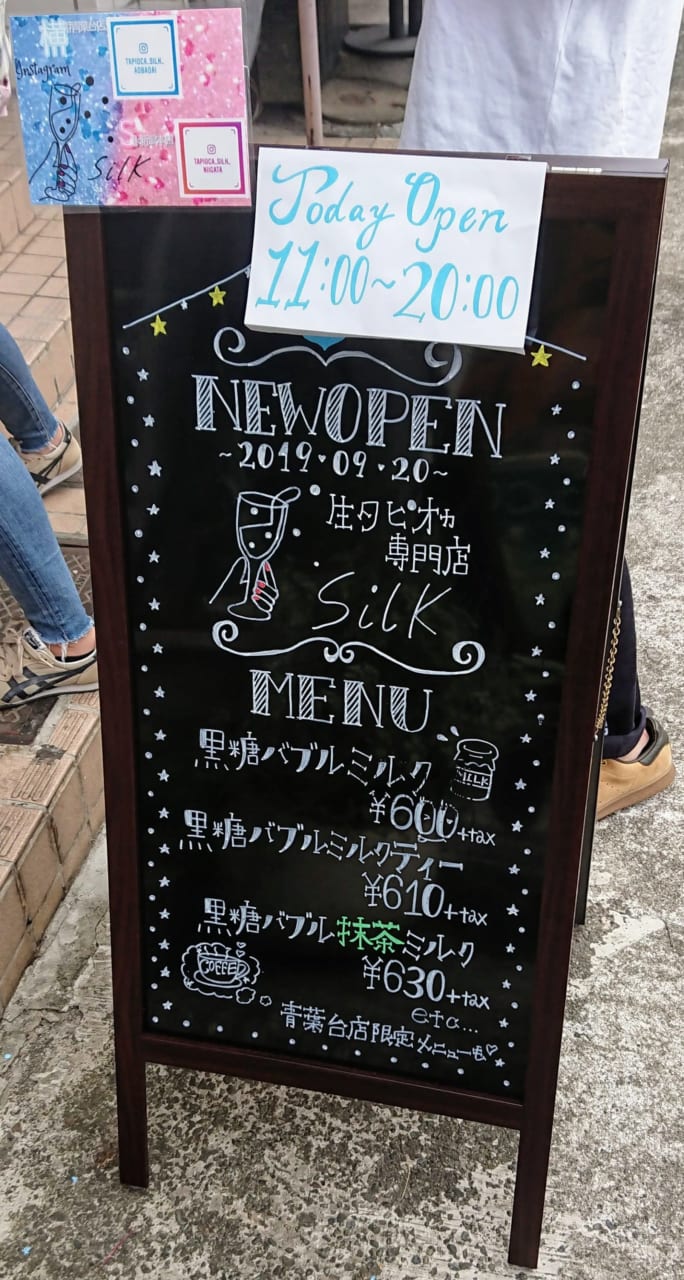 Instagram
TAPIOCA_SILK_
AOBADAI
TAPIOCA_SILK_
NIIGATA
Silk
Today Open
11:00~20:00
NEW OPEN
~2019・09・20~
生タピオカ
専門店
Silk
MENU
黒糖バブルミルク
SILK
¥600+tax
黒糖バブルミルクティー
¥610+tax
黒糖バブル抹茶ミルク
¥630+tax
COFFEE
etc...
青葉台店限定メニューも♡